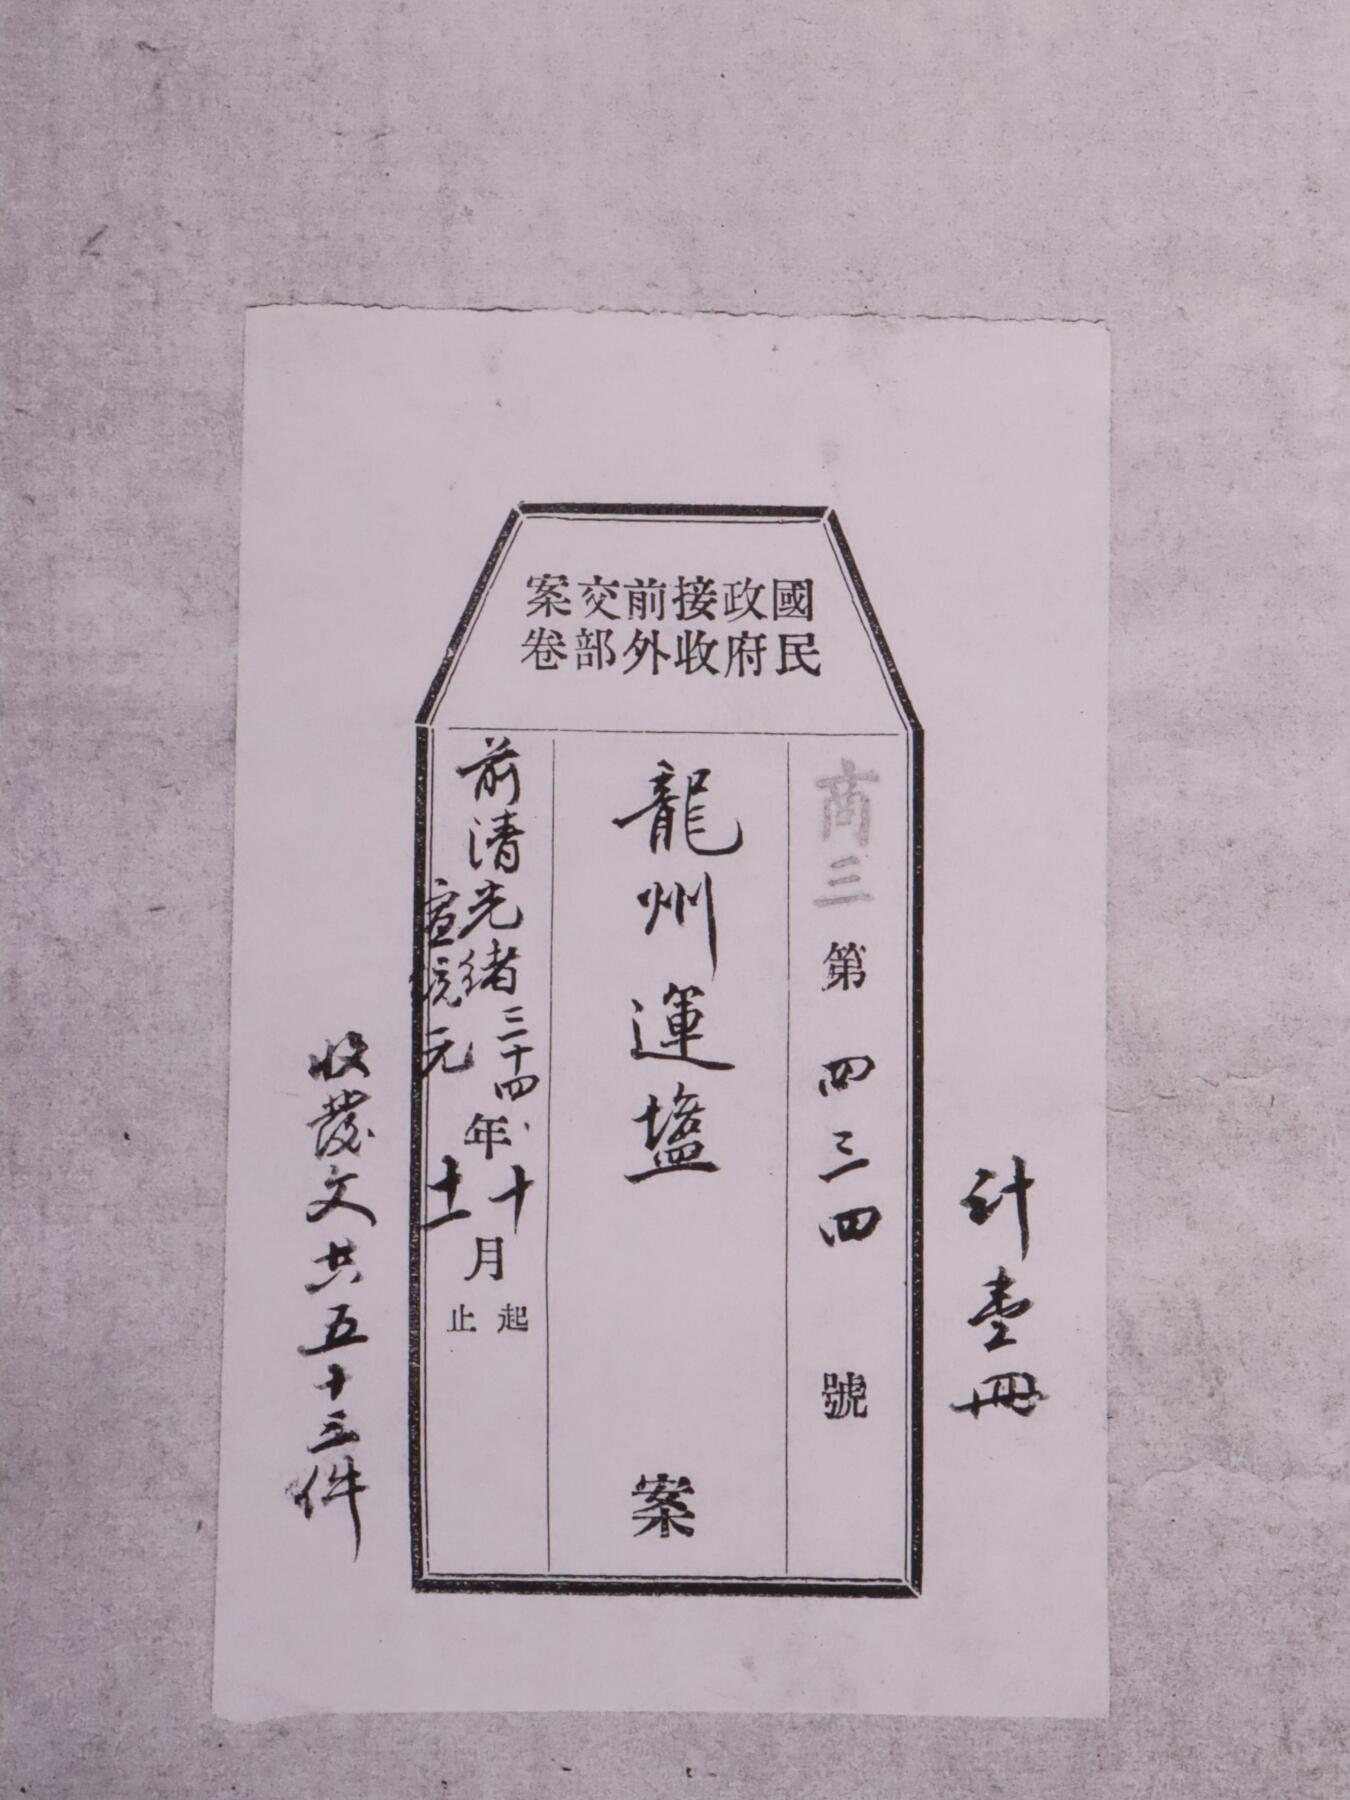 計壹冊
國民
政府
接收
前外
交部
案卷
商三第四三四號
龍州運塩案
前清光緒三十四年十月起
宣統元十一止
收發文共五十三件